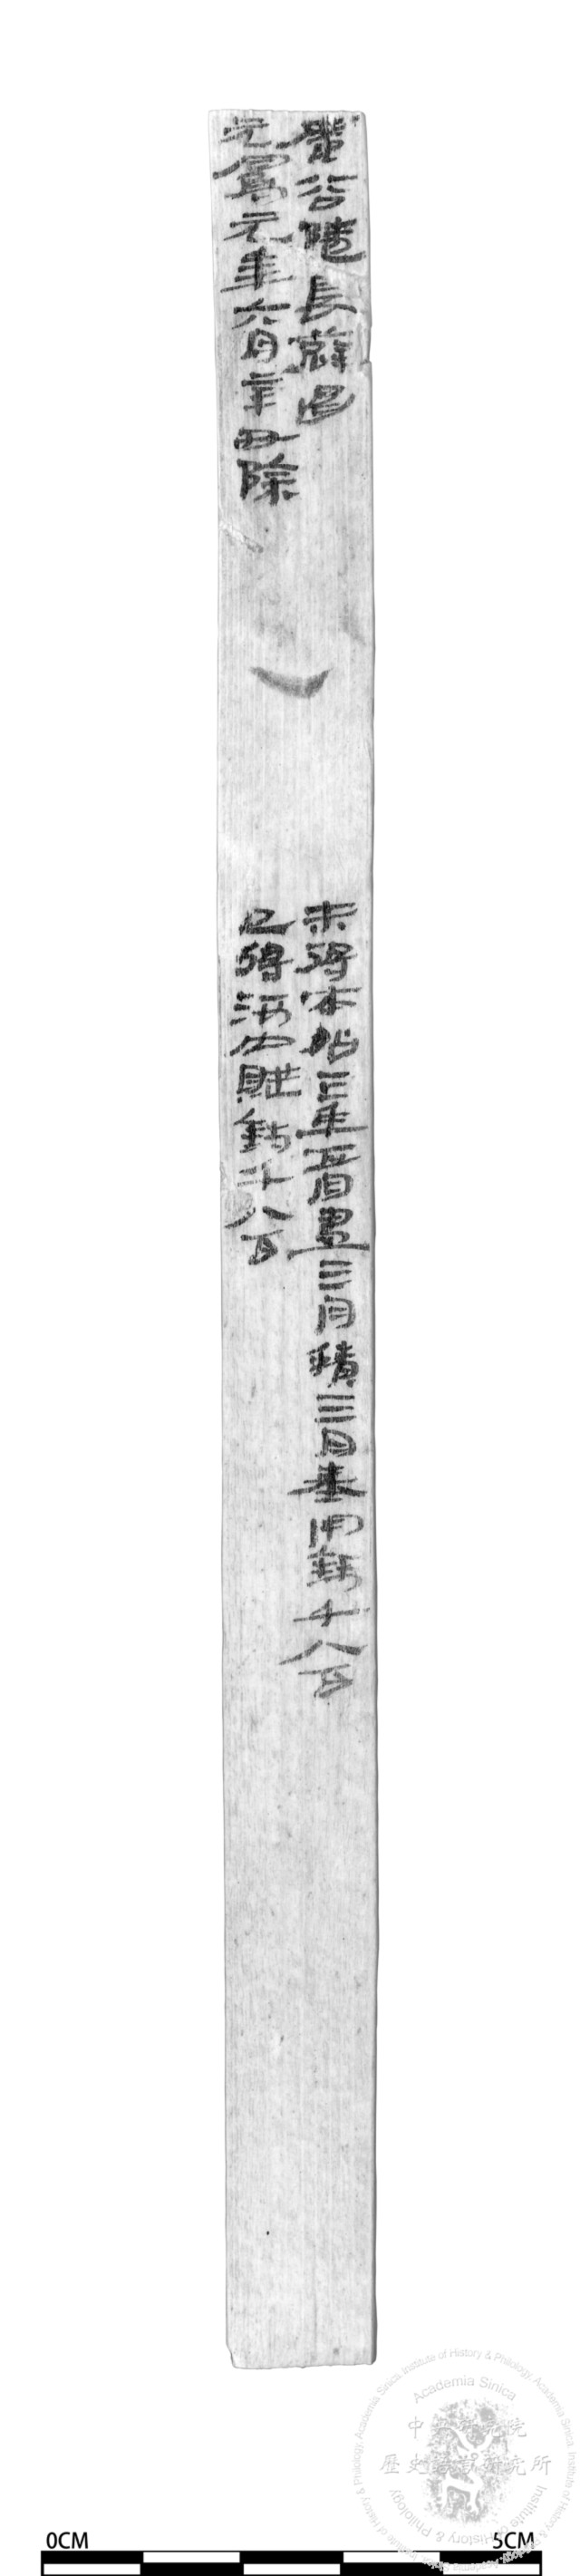 公隧長薛昌
元鳳元年六月辛丑除
未得本始三年正月盡三月積三月奉用錢千八百
已得河內賦錢千八百
Academia Sinica
中央研究院
歷史語言研究所
Institute of History & Philology
0CM 5CM